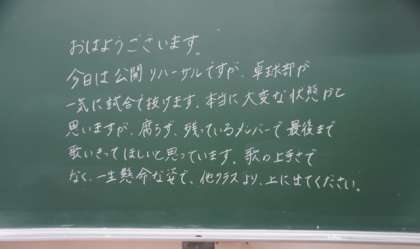 おはようございます。
今日は公開リハーサルですが、卓球部が
一気に試合で抜けます。本当に大変な状態かと
思いますが、腐らず、残っているメンバーで最後まで
歌いきってほしいと思っています。歌の上手さで
なく、一生懸命な姿で、他クラスより、上に出てください。